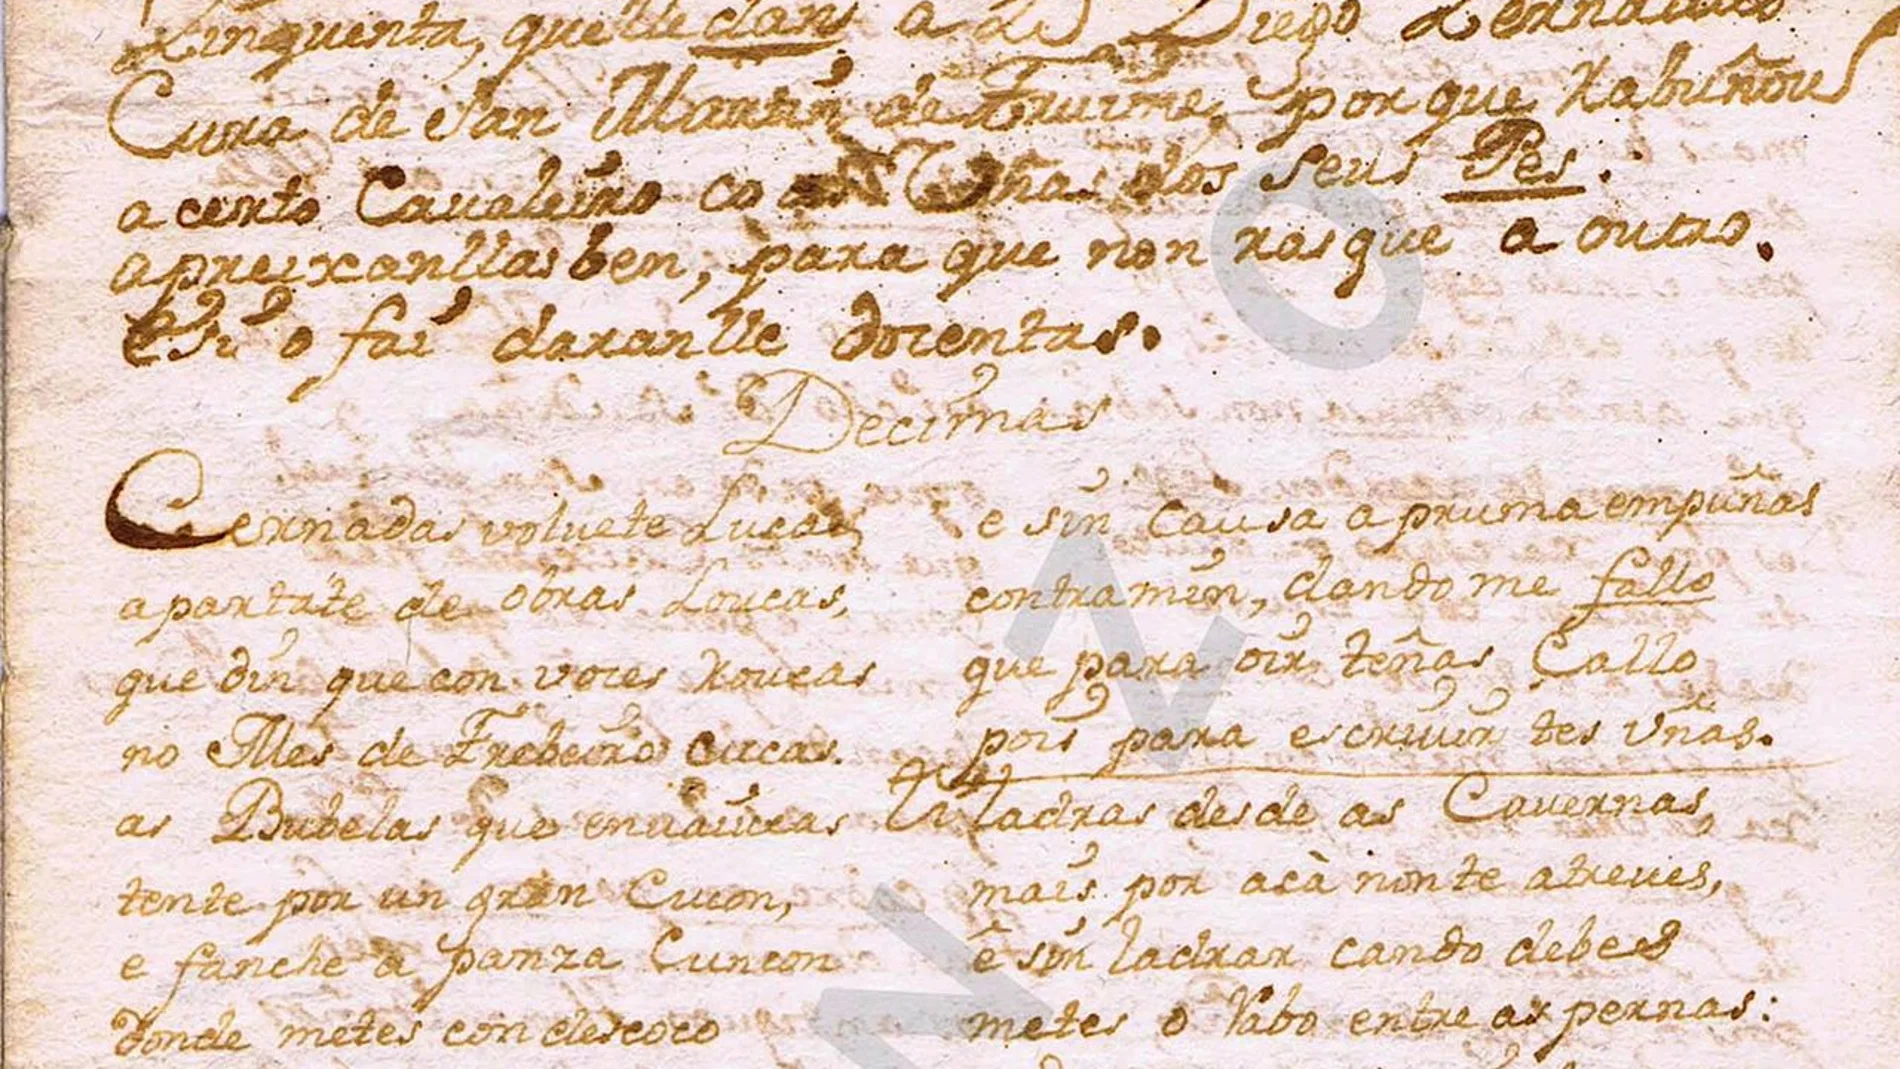 Zinquenta, que lle dan a D. Diego Zernadas
Cura de San Martin de Fruime, porque Rabuñou
a certo Caualeiro co as Vñas dos seus Pes.
apreixanllas ben, para que non rasgue a outro.
e si o fai daranlle docentas.
Decimas
Cernadas voluete Lucas,
apartate de obras Loucas,
que din que con voces Roucas
no Mes de Frebeiro cucas.
as Bubelas que envaiucas
tente por un gran Cucon,
e fanche a panza Cuncon
donde metes con descoco
e sin causa a pruma empuñas
contra min, dandome fallo
que para oir teñas Callo
pois para escriuir tes vñas.
Ti ladras desde as Cauernas,
mais por acà non te atreues,
e sin ladrar cando debes
metes o Rabo entre as pernas: